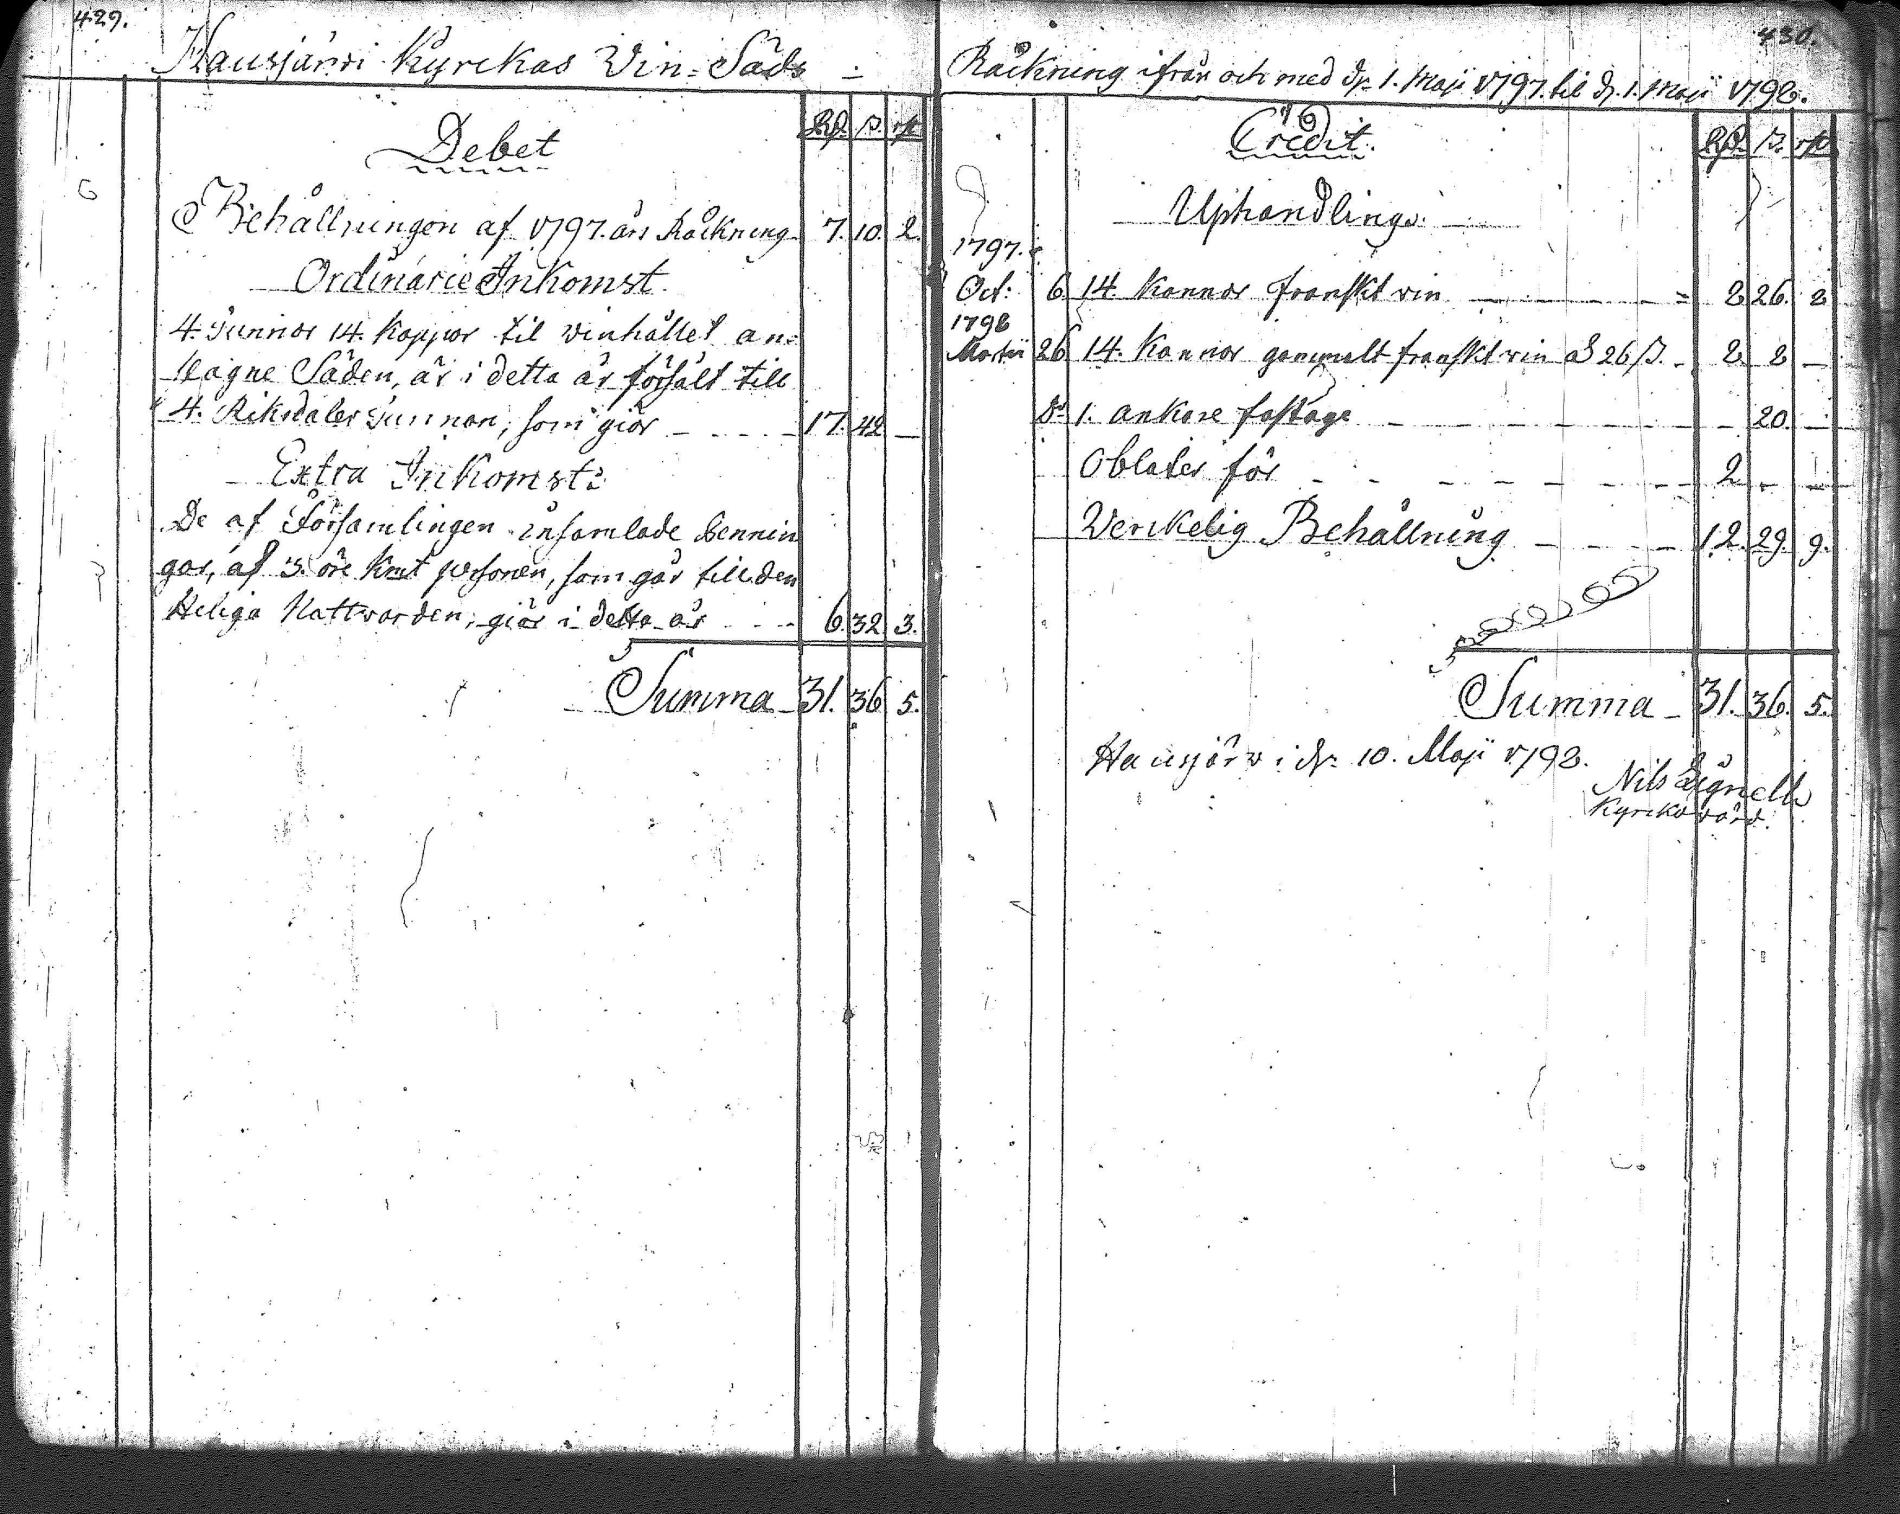 429.
Hausjärvi Kyrckas Vin-Säds
Debet
Rd. ß. rst
Behållningen af 1797. års Räckning 7. 10. 2.
Ordinarie Inkomst.
4. Tunnor 14. Kappor til vinhållet an-
slagne Säden, är i detta år försålt till
4. Riksdaler Tunnan, som giör 17. 42 —
Extra Inkomst:
De af Församlingen insamlade Pennin
gar, af 3. öre Kmt personen, som går till den
Heliga Nattwarden, giör i detta år 6. 32 3.
Summa 31. 36 5.
430.
Räckning ifrån och med d. 1. Maji 1797. til d. 1. Maji 1798.
Credit.
Rd. ß. rst
Uphandling.
1797.
Oct: 6 14. Kannor franskt vin 8 26. 8
1798
Martii 26 14. Kannor gammalt franskt vin à 26 ß. 8 8 —
d:o 1. ankare fastage — 20. —
Oblater för 2 — —
Werckelig Behållning 12. 29. 9.
Summa 31. 36. 5.
Hausjärvi d. 10. Maji 1798.
Nils Lignell
Kyrckovärd.